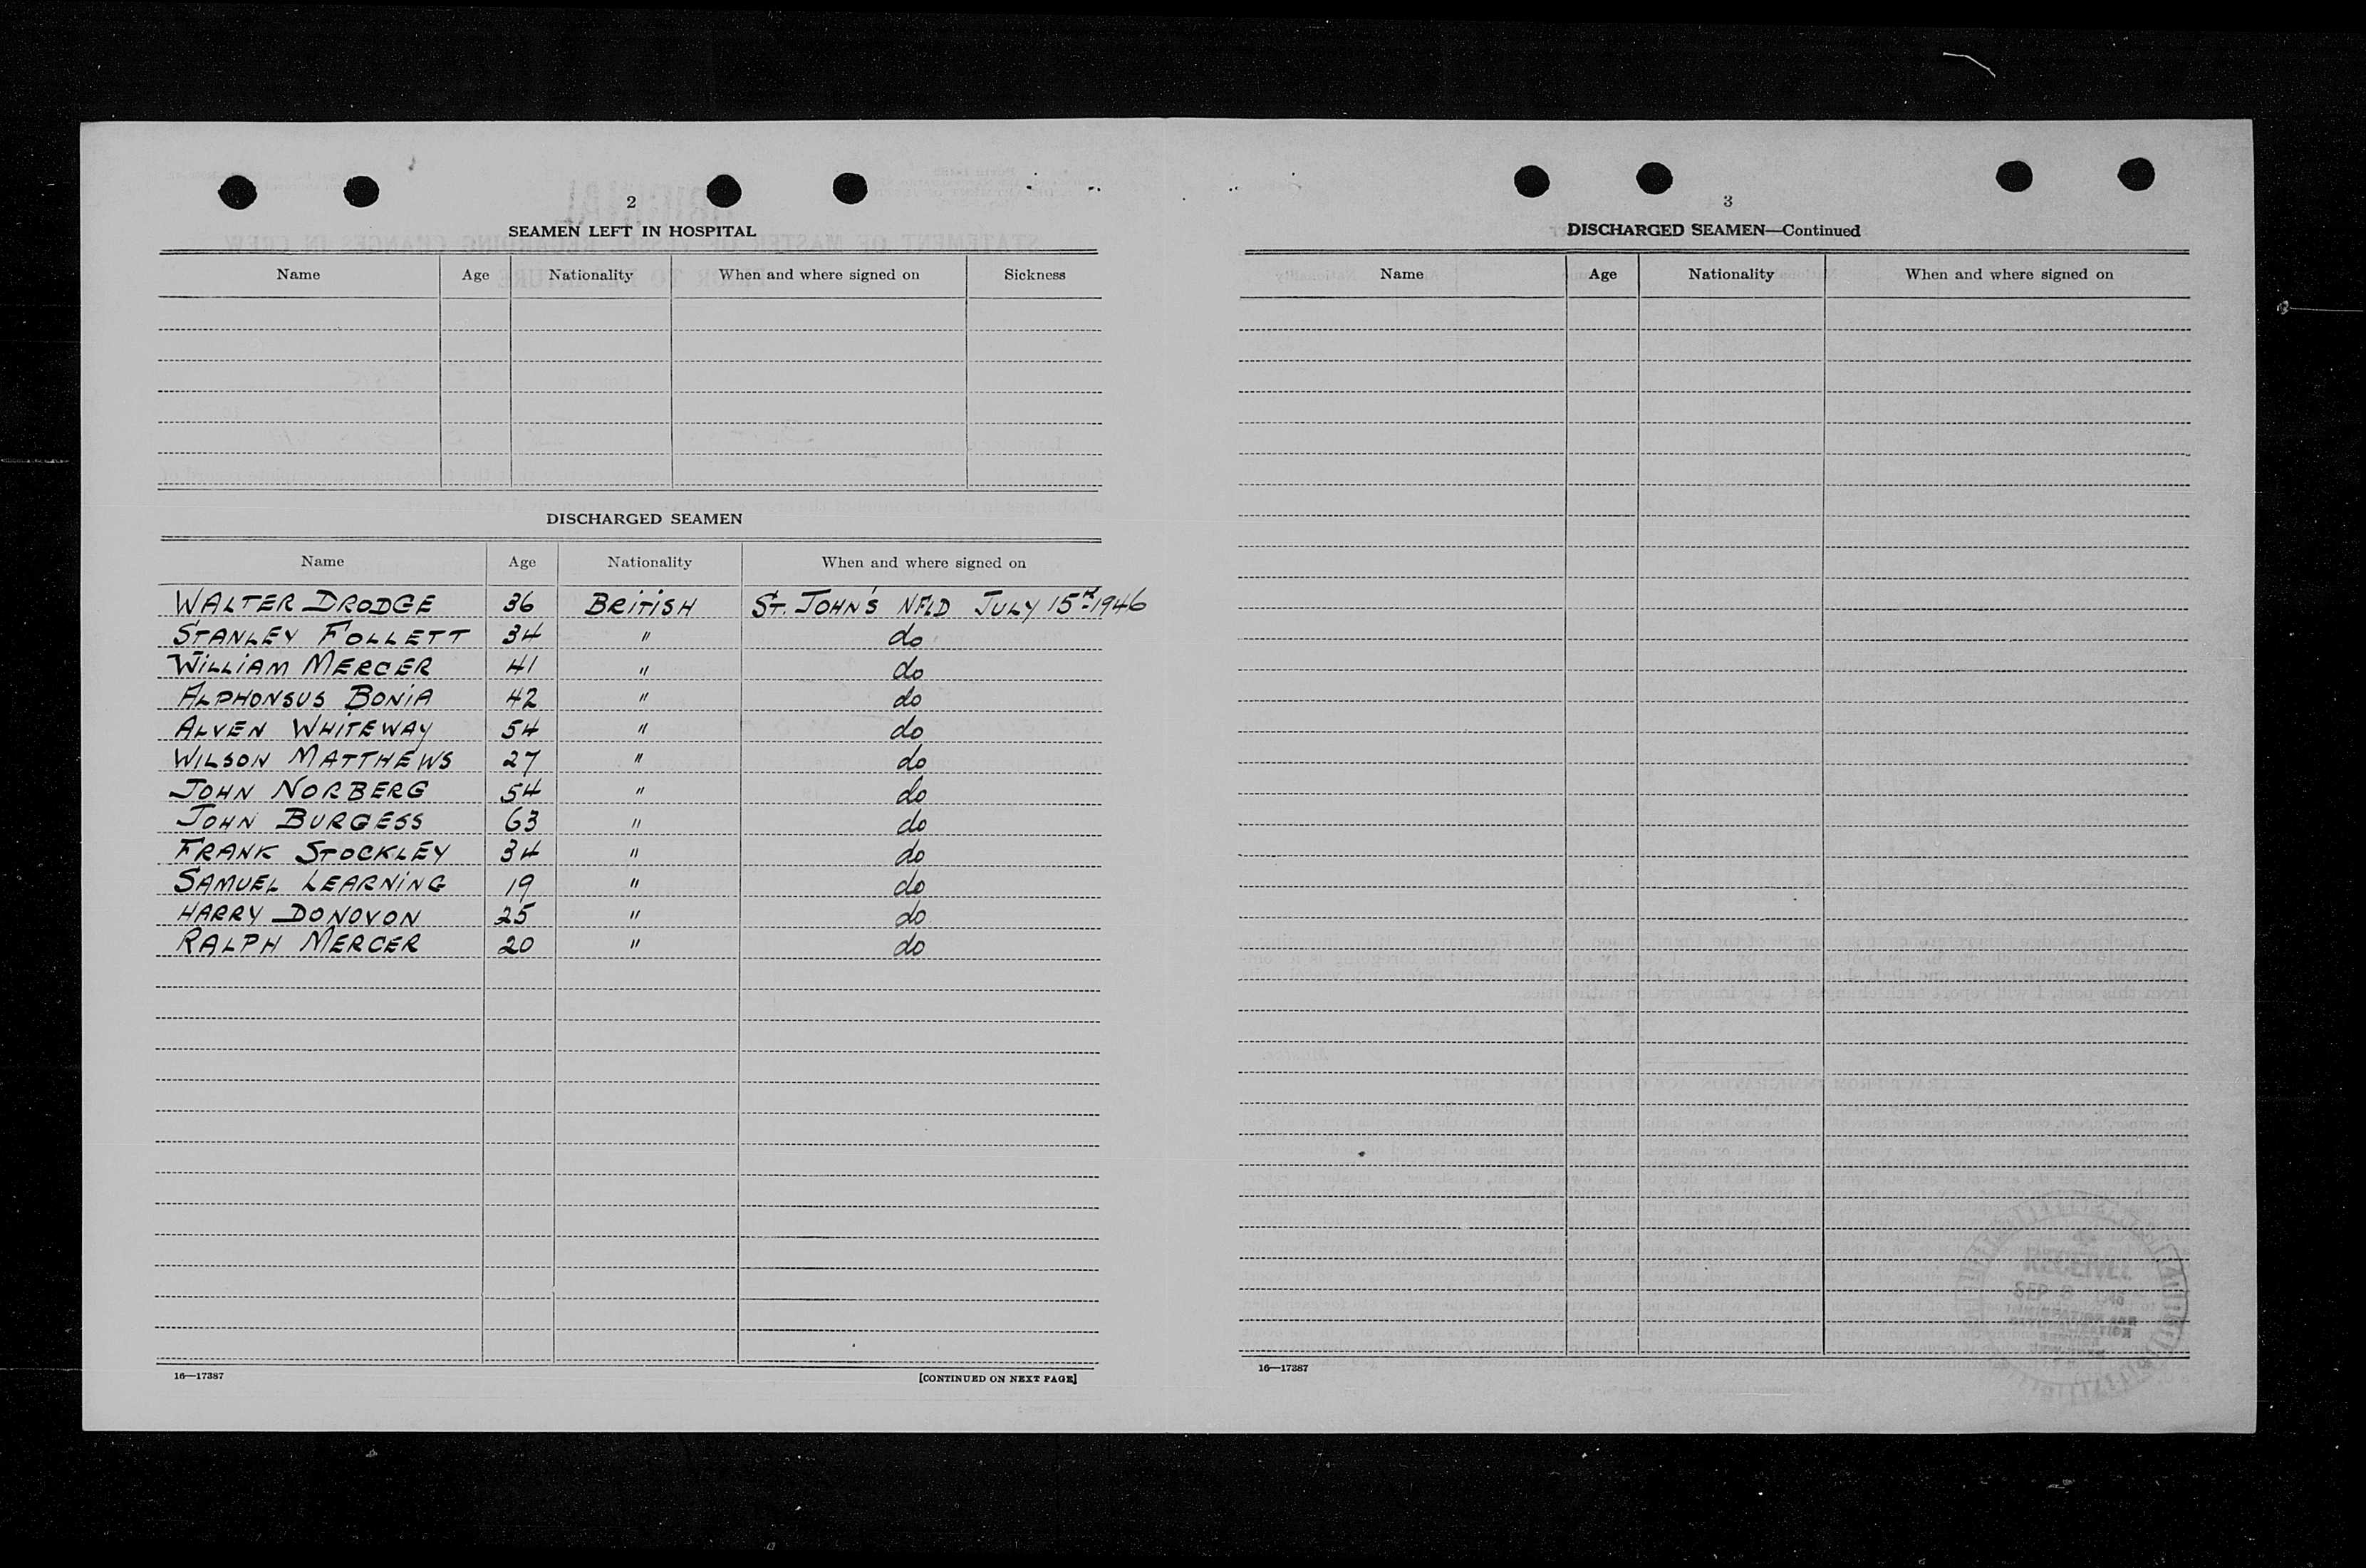 2
SEAMEN LEFT IN HOSPITAL
Name Age Nationality When and where signed on Sickness
DISCHARGED SEAMEN
Name Age Nationality When and where signed on
WALTER DRODGE 36 BRITISH ST. JOHN'S NFLD JULY 15th 1946
STANLEY FOLLETT 34 " do
WILLIAM MERCER 41 " do
ALPHONSUS BONIA 42 " do
ALVEN WHITEWAY 54 " do
WILSON MATTHEWS 27 " do
JOHN NORBERG 54 " do
JOHN BURGESS 63 " do
FRANK STOCKLEY 34 " do
SAMUEL LEARNING 19 " do
HARRY DONOVON 25 " do
RALPH MERCER 20 " do
16—17387 [CONTINUED ON NEXT PAGE]
3
DISCHARGED SEAMEN—Continued
Name Age Nationality When and where signed on
RECEIVED
SEP
16—17387